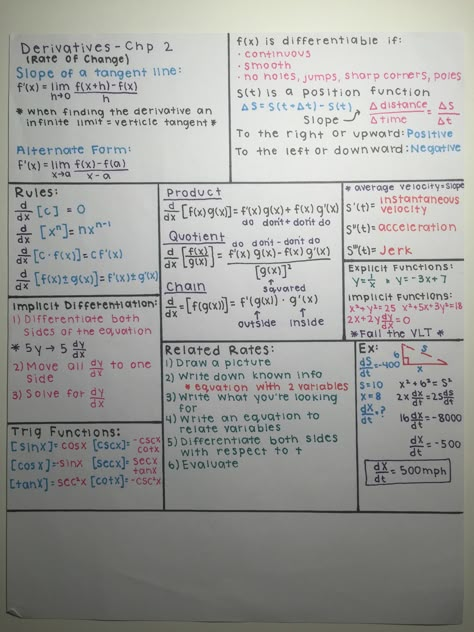 Derivatives - Chp 2
(Rate of Change)
Slope of a tangent line:
f'(x) = lim h→0 f(x+h)-f(x) / h
* when finding the derivative an
infinite limit = verticle tangent *
Alternate Form:
f'(x) = lim x→a f(x)-f(a) / x-a
f(x) is differentiable if:
· continuous
· smooth
· no holes, jumps, sharp corners, poles
S(t) is a position function
ΔS = S(t+Δt) - S(t)
Slope → Δdistance / Δtime = ΔS / Δt
To the right or upward: Positive
To the left or downward: Negative
Rules:
d/dx [c] = 0
d/dx [xⁿ] = nxⁿ⁻¹
d/dx [c·f(x)] = cf'(x)
d/dx [f(x)±g(x)] = f'(x)±g'(x)
Product
d/dx [f(x)g(x)] = f'(x)g(x) + f(x)g'(x)
do don't + don't do
Quotient
do don't - don't do
d/dx [f(x)/g(x)] = f'(x)g(x) - f(x)g'(x) / [g(x)]²
squared
Chain
d/dx = [f(g(x))] = f'(g(x)) · g'(x)
outside inside
* average velocity = slope
S'(t) = instantaneous
velocity
S''(t) = acceleration
S'''(t) = Jerk
Explicit Functions:
y = 1/x * y = -3x + 7
Implicit Functions:
x² + y² = 25 x² + 5x + 3y² = 18
2x + 2y dy/dx = 0
*Fail the VLT*
Implicit Differentiation:
1) Differentiate both
sides of the equation
* 5y → 5 dy/dx
2) Move all dy/dx to one
side
3) Solve for dy/dx
Related Rates:
1) Draw a picture
2) Write down known info
* equation with 2 variables
3) Write what you're looking
for
4) Write an equation to
relate variables
5) Differentiate both sides
with respect to t
6) Evaluate
Ex:
6 s x
ds/dt = -400
s = 10
x = 8
dx/dt = ?
x² + 6² = s²
2x dx/dt = 2s ds/dt
16 dx/dt = -8000
dx/dt = -500
dx/dt = 500mph
Trig Functions:
[sinx] = cosx [cscx] = -cscx cotx
[cosx] = -sinx [secx] = secx tanx
[tanx] = sec²x [cotx] = -csc²x